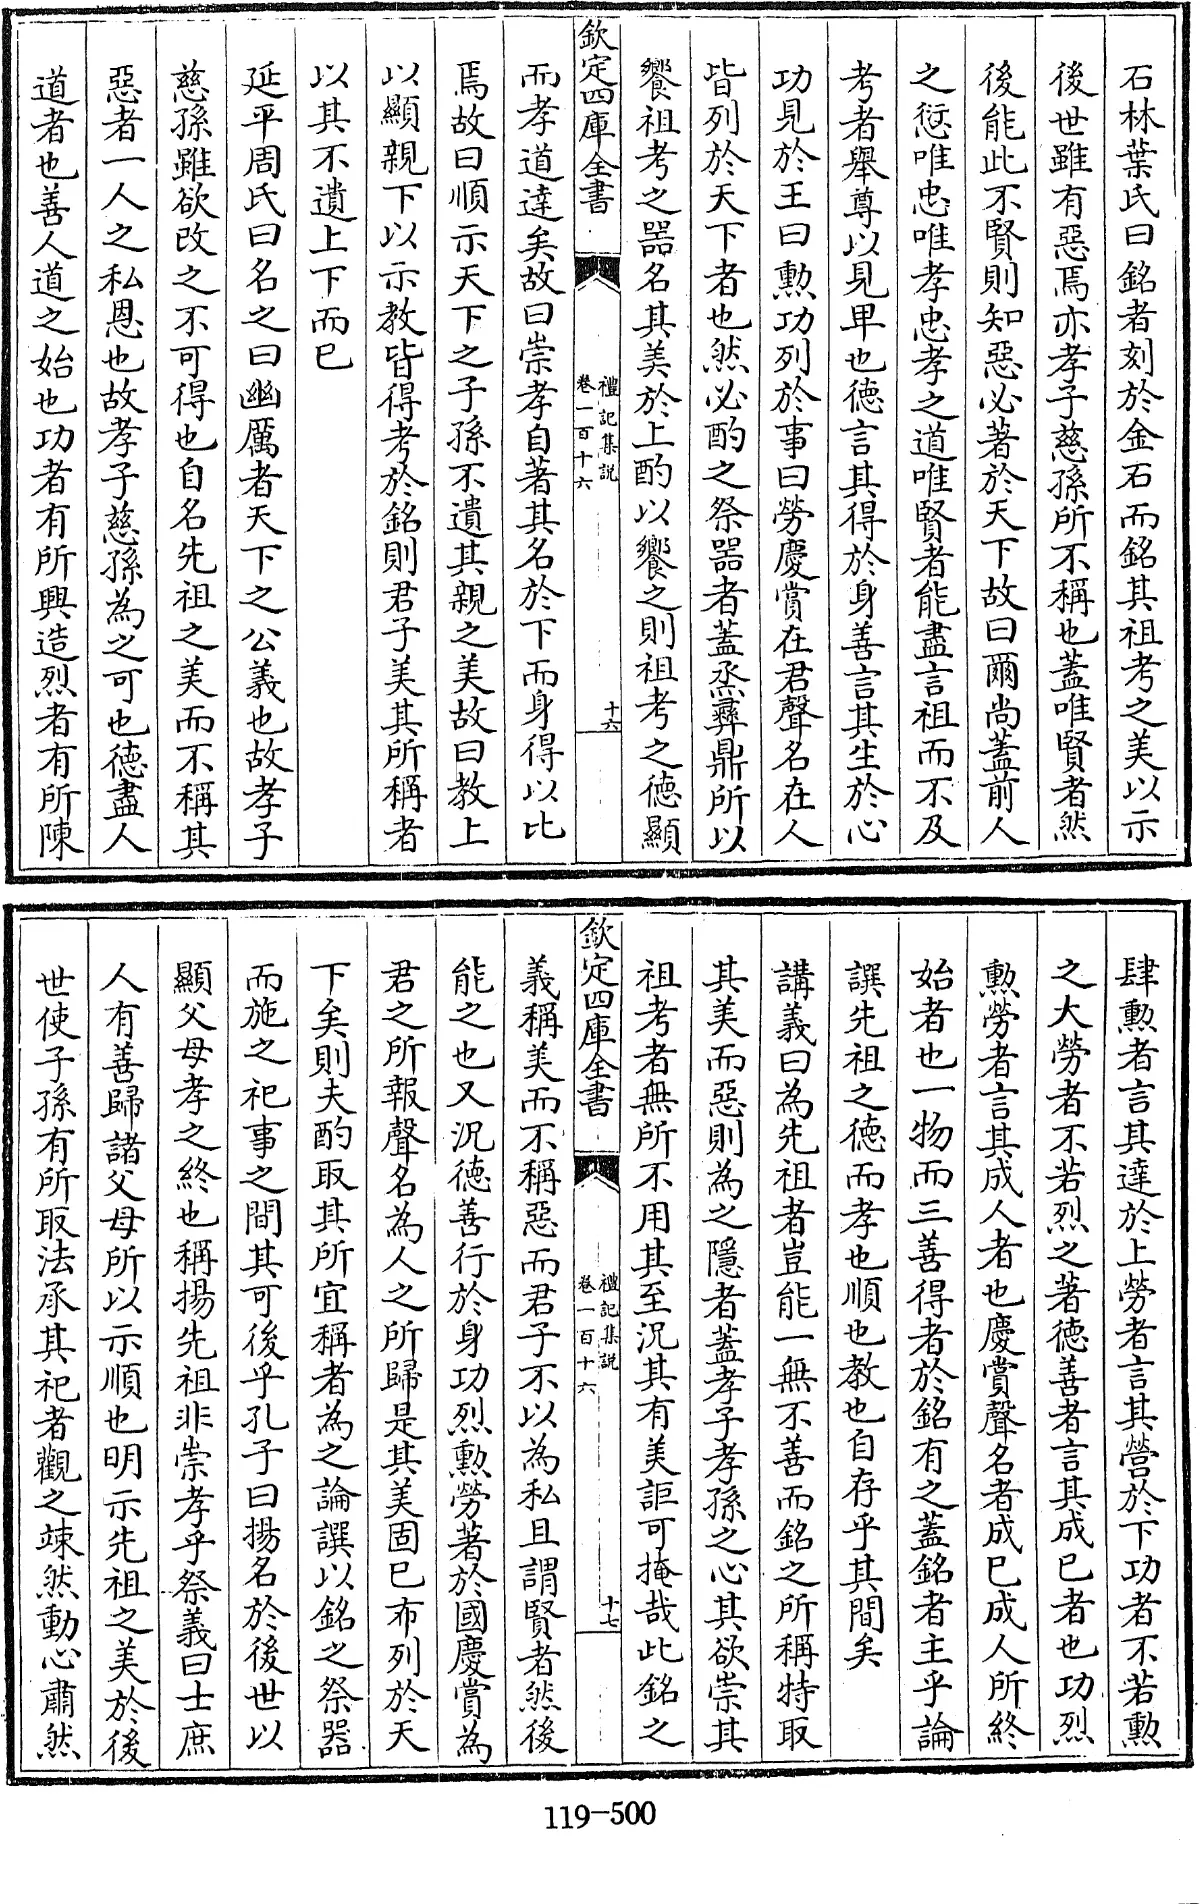 石林葉氏曰銘者刻於金石而銘其祖考之美以示
後世雖有惡焉亦孝子慈孫所不稱也蓋唯賢者然
後能此不賢則知惡必著於天下故曰爾尚蓋前人
之愆唯忠唯孝忠孝之道唯賢者能盡言祖而不及
考者舉尊以見卑也德言其得於身善言其生於心
功見於王曰勲功列於事曰勞慶賞在君聲名在人
皆列於天下者也然必酌之祭器者蓋烝彛鼎所以
饗祖考之器名其美於上酌以饗之則祖考之德顯
欽定四庫全書
禮記集說
卷一百十六
十六
而孝道達矣故曰崇孝自著其名於下而身得以比
焉故曰順示天下之子孫不遺其親之美故曰教上
以顯親下以示教皆得考於銘則君子美其所稱者
以其不遺上下而已
延平周氏曰名之曰幽厲者天下之公義也故孝子
慈孫雖欲改之不可得也自名先祖之美而不稱其
惡者一人之私恩也故孝子慈孫為之可也德盡人
道者也善人道之始也功者有所興造烈者有所陳
肆勲者言其達於上勞者言其營於下功者不若勲
之大勞者不若烈之著德善者言其成已者也功烈
勲勞者言其成人者也慶賞聲名者成已成人所終
始者也一物而三善得者於銘有之蓋銘者主乎論
譔先祖之德而孝也順也教也自存乎其間矣
講義曰為先祖者豈能一無不善而銘之所稱特取
其美而惡則為之隱者蓋孝子孝孫之心其欲崇其
祖考者無所不用其至況其有美詎可掩哉此銘之
欽定四庫全書
禮記集說
卷一百十六
十七
義稱美而不稱惡而君子不以為私且謂賢者然後
能之也又況德善行於身功烈勲勞著於國慶賞為
君之所報聲名為人之所歸是其美固已布列於天
下矣則夫酌取其所宜稱者為之論譔以銘之祭器
而施之祀事之間其可後乎孔子曰揚名於後世以
顯父母孝之終也稱揚先祖非崇孝乎祭義曰士庶
人有善歸諸父母所以示順也明示先祖之美於後
世使子孫有所取法承其祀者觀之竦然動心肅然
119-500